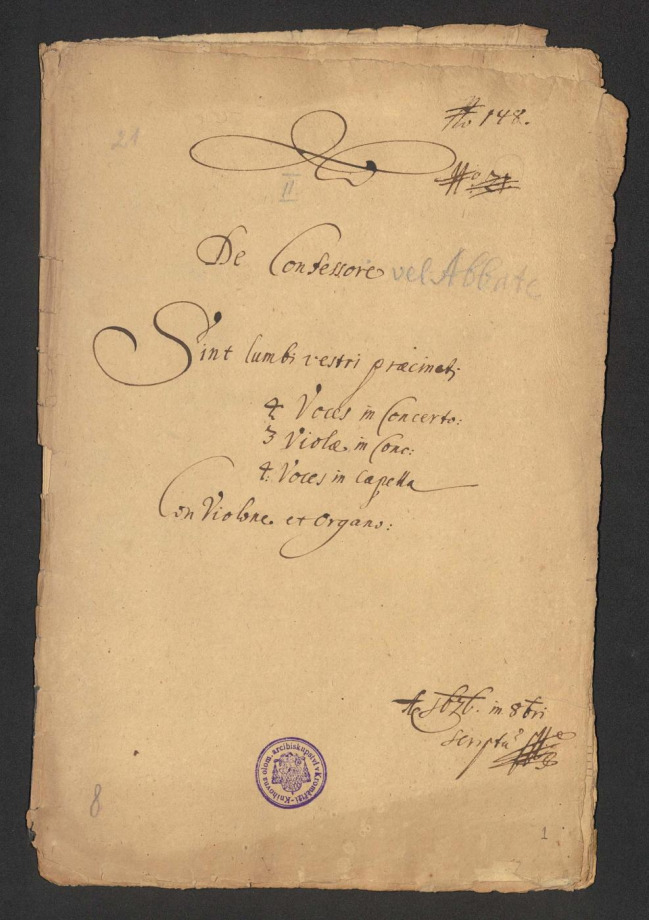 No 148.
21
II
De Confessore vel Abbate
Sint lumbi vestri præcincti
4 Voces in Concerto:
3 Violæ in Conc:
4: Voces in Capella
Con Violone et Organo:
in 8bri
scriptu
Knihovna olom. arcibiskupství v Kroměříži
8
1